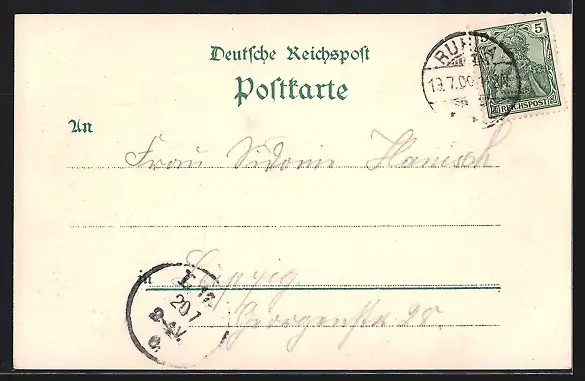 Deutsche Reichspost
Postkarte
An
Frau Sidonie Hanisch
in Leipzig
Georgenstr 25
5
REICHSPOST
RUHLA
19.7.00
20 7